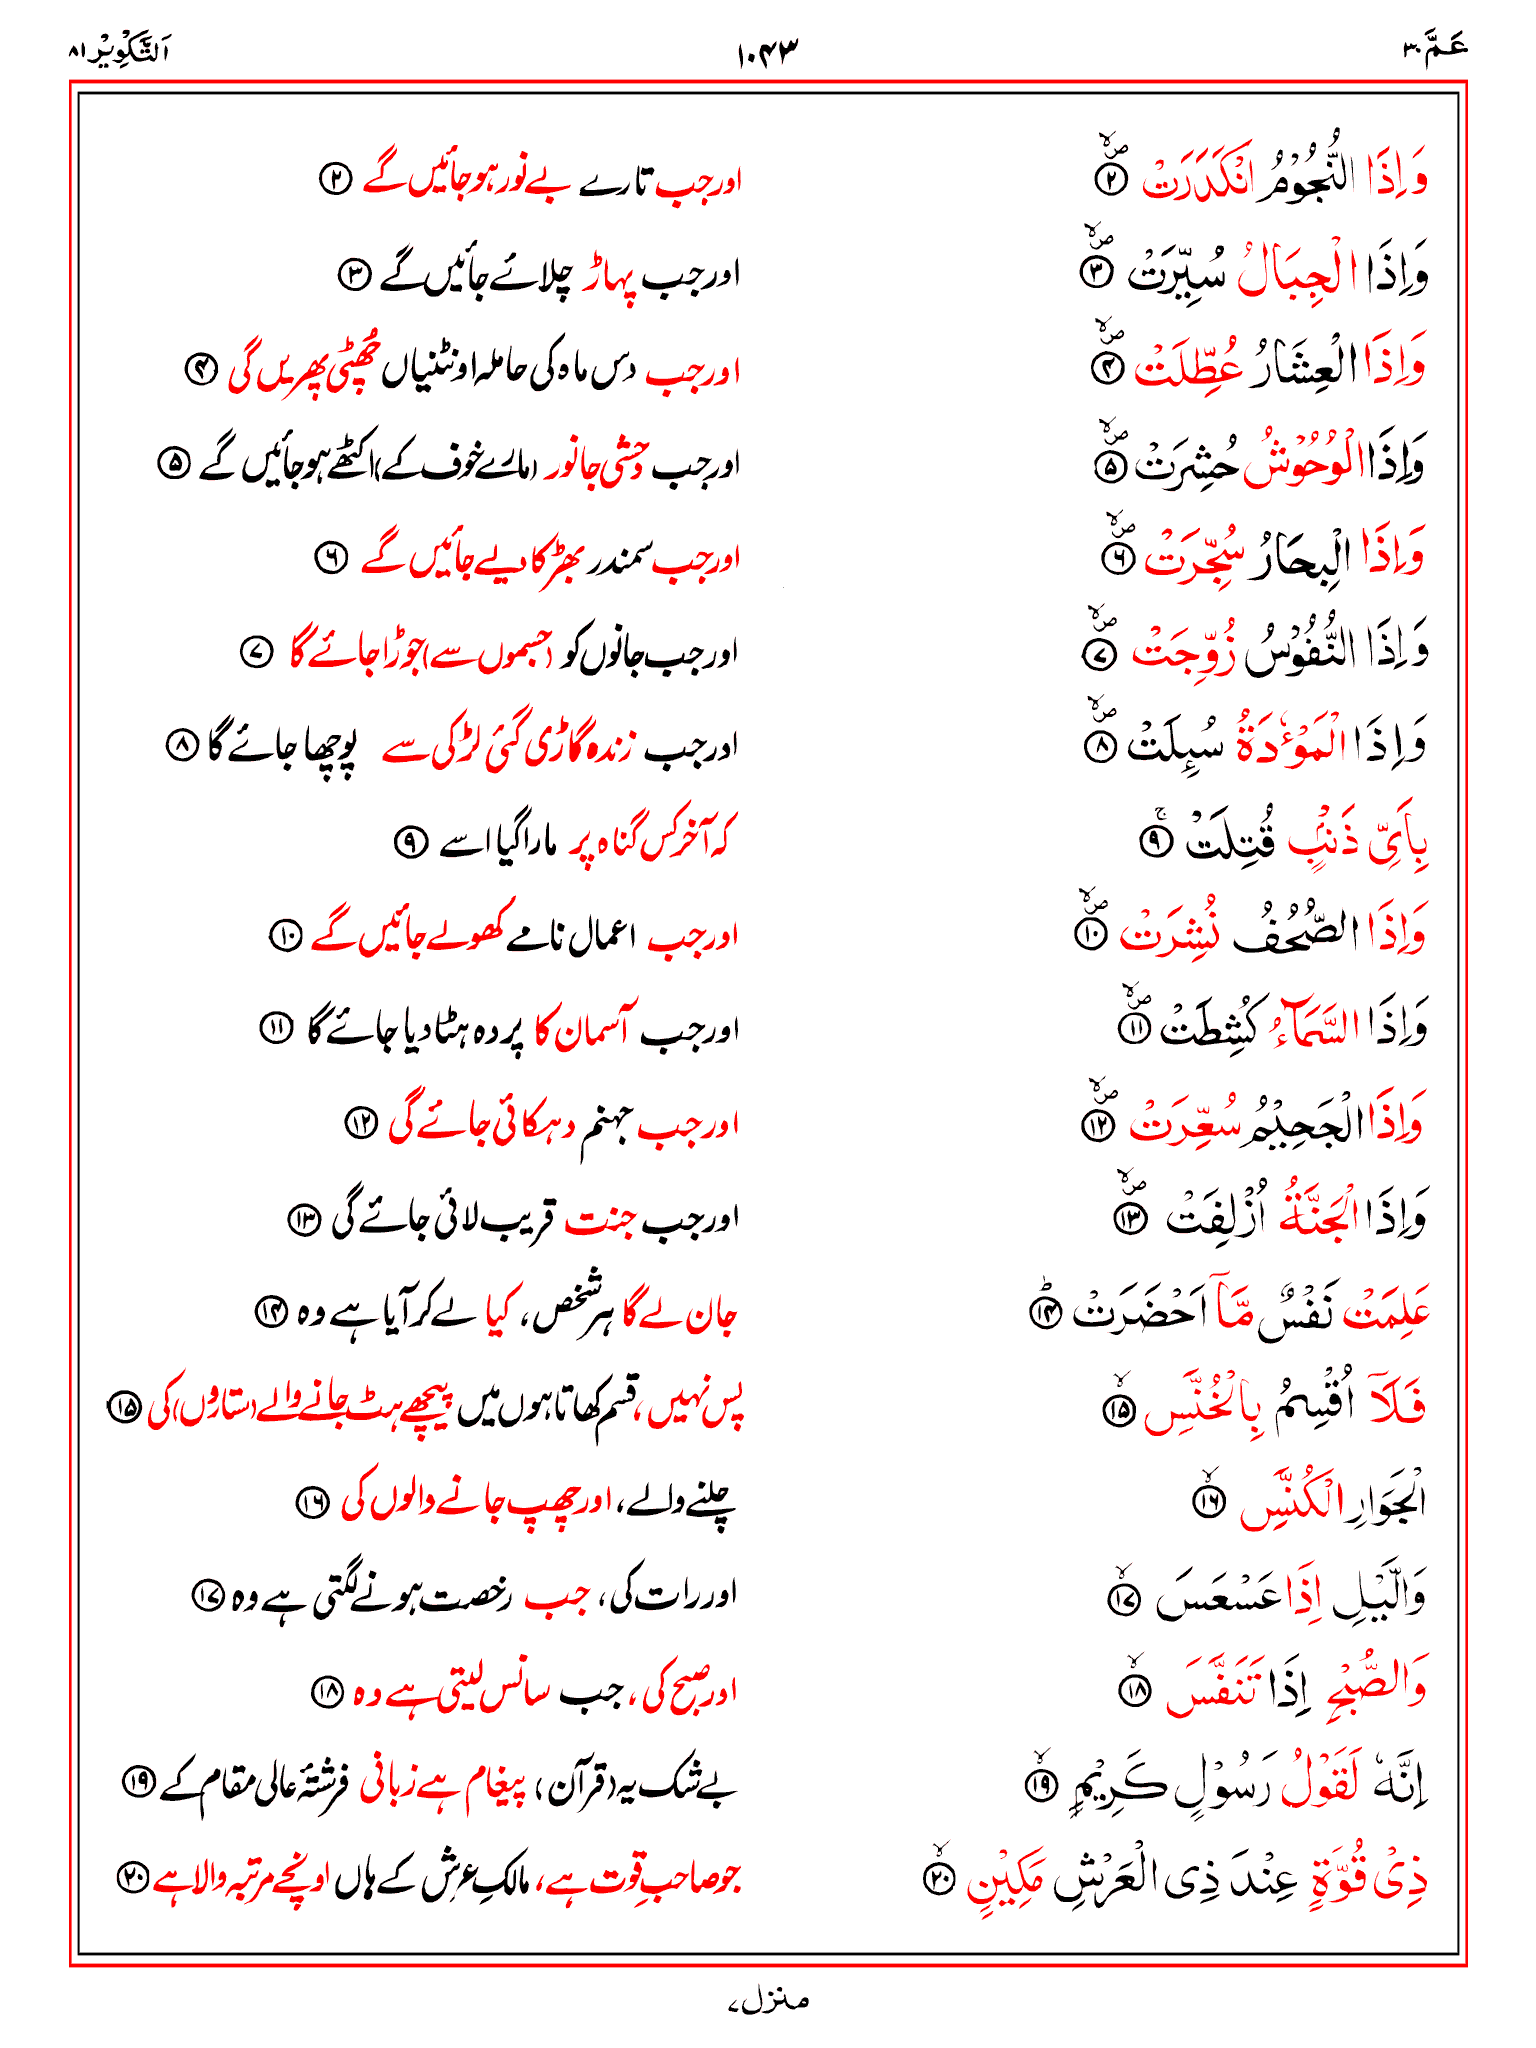 عَمَّ ٣٠ ١٠۴٣ اَلتَّكْوِيْر ٨١
وَاِذَا النُّجُوْمُ انْكَدَرَتْ ۪ۙ ۲ اور جب تارے بے نور ہو جائیں گے ۲
وَاِذَا الْجِبَالُ سُيِّرَتْ ۪ۙ ۳ اور جب پہاڑ چلائے جائیں گے ۳
وَاِذَا الْعِشَارُ عُطِّلَتْ ۪ۙ ۴ اور جب دس ماہ کی حاملہ اونٹنیاں چُھٹی پھریں گی ۴
وَاِذَا الْوُحُوْشُ حُشِرَتْ ۪ۙ ۵ اور جب وحشی جانور (مارے خوف کے) اکٹھے ہو جائیں گے ۵
وَاِذَا الْبِحَارُ سُجِّرَتْ ۪ۙ ۶ اور جب سمندر بھڑکا دیے جائیں گے ۶
وَاِذَا النُّفُوْسُ زُوِّجَتْ ۪ۙ ۷ اور جب جانوں کو (جسموں سے) جوڑا جائے گا ۷
وَاِذَا الْمَوْءٗدَةُ سُىِٕلَتْ ۪ۙ ۸ اور جب زندہ گاڑی گئی لڑکی سے پوچھا جائے گا ۸
بِاَىِّ ذَنْۢبٍ قُتِلَتْ ۚ ۹ کہ آخر کس گناہ پر مارا گیا اسے ۹
وَاِذَا الصُّحُفُ نُشِرَتْ ۪ۙ ۱۰ اور جب اعمال نامے کھولے جائیں گے ۱۰
وَاِذَا السَّمَآءُ كُشِطَتْ ۪ۙ ۱۱ اور جب آسمان کا پردہ ہٹا دیا جائے گا ۱۱
وَاِذَا الْجَحِيْمُ سُعِّرَتْ ۪ۙ ۱۲ اور جب جہنم دہکائی جائے گی ۱۲
وَاِذَا الْجَنَّةُ اُزْلِفَتْ ۪ۙ ۱۳ اور جب جنت قریب لائی جائے گی ۱۳
عَلِمَتْ نَفْسٌ مَّاۤ اَحْضَرَتْ ؕ ۱۴ جان لے گا ہر شخص، کیا لے کر آیا ہے وہ ۱۴
فَلَاۤ اُقْسِمُ بِالْخُنَّسِ ۙ ۱۵ پس نہیں، قسم کھاتا ہوں میں پیچھے ہٹ جانے والے (ستاروں) کی ۱۵
الْجَوَارِ الْكُنَّسِ ۙ ۱۶ چلنے والے، اور چھپ جانے والوں کی ۱۶
وَالَّيْلِ اِذَا عَسْعَسَ ۙ ۱۷ اور رات کی، جب رخصت ہونے لگتی ہے وہ ۱۷
وَالصُّبْحِ اِذَا تَنَفَّسَ ۙ ۱۸ اور صبح کی، جب سانس لیتی ہے وہ ۱۸
اِنَّهٗ لَقَوْلُ رَسُوْلٍ كَرِيْمٍ ۙ ۱۹ بے شک یہ (قرآن)، پیغام ہے زبانی فرشتۂ عالی مقام کے ۱۹
ذِىْ قُوَّةٍ عِنْدَ ذِى الْعَرْشِ مَكِيْنٍ ۙ ۲۰ جو صاحبِ قوت ہے، مالکِ عرش کے ہاں اونچے مرتبہ والا ہے ۲۰
منزل ۷